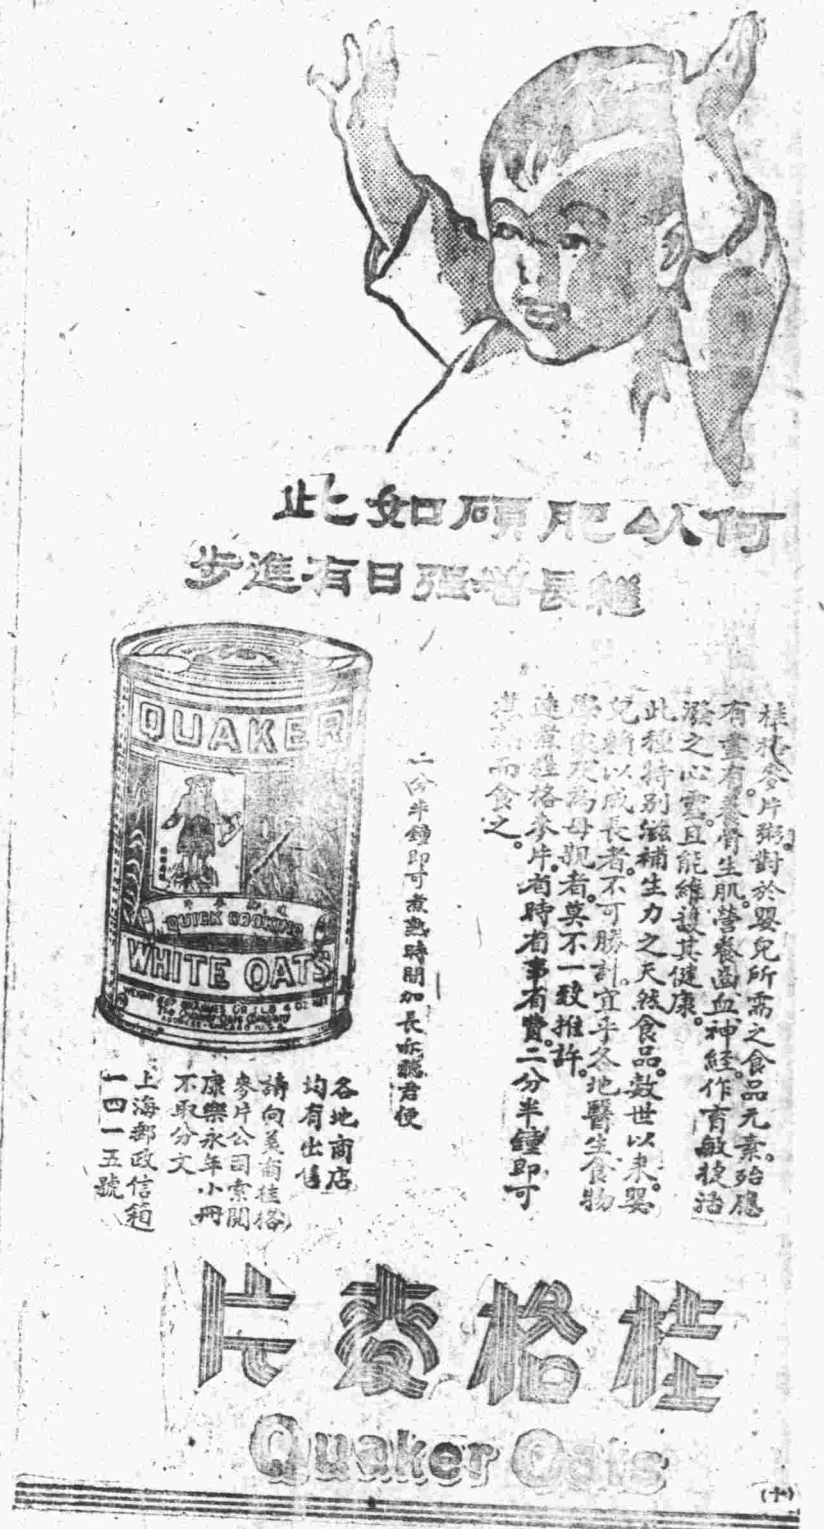 何以肥碩如此
繼長增强日有進步
桂格麥片粥。對於嬰兒所需之食品元素。殆應
有盡有。養骨生肌。營養齒血神經。作育敏捷活
潑之心靈。且能維護其健康。
此種特別滋補生力之天然食品。數世以來。嬰
兒賴以成長者。不可勝計。宜乎各地醫生食物
學家及爲母親者。莫不一致推許。
速煮桂格麥片。省時省事省費。二分半鐘即可
而食之。
二分半鐘即可煮熟時間加長亦聽君便
QUAKER
QUICK COOKING
WHITE OATS
The Quaker Oats Company
各地商店
均有出售
請向美商桂格
麥片公司索閱
康樂永年小冊
不取分文
上海郵政信箱
一四一五號
桂格麥片
Quaker Oats
(十)